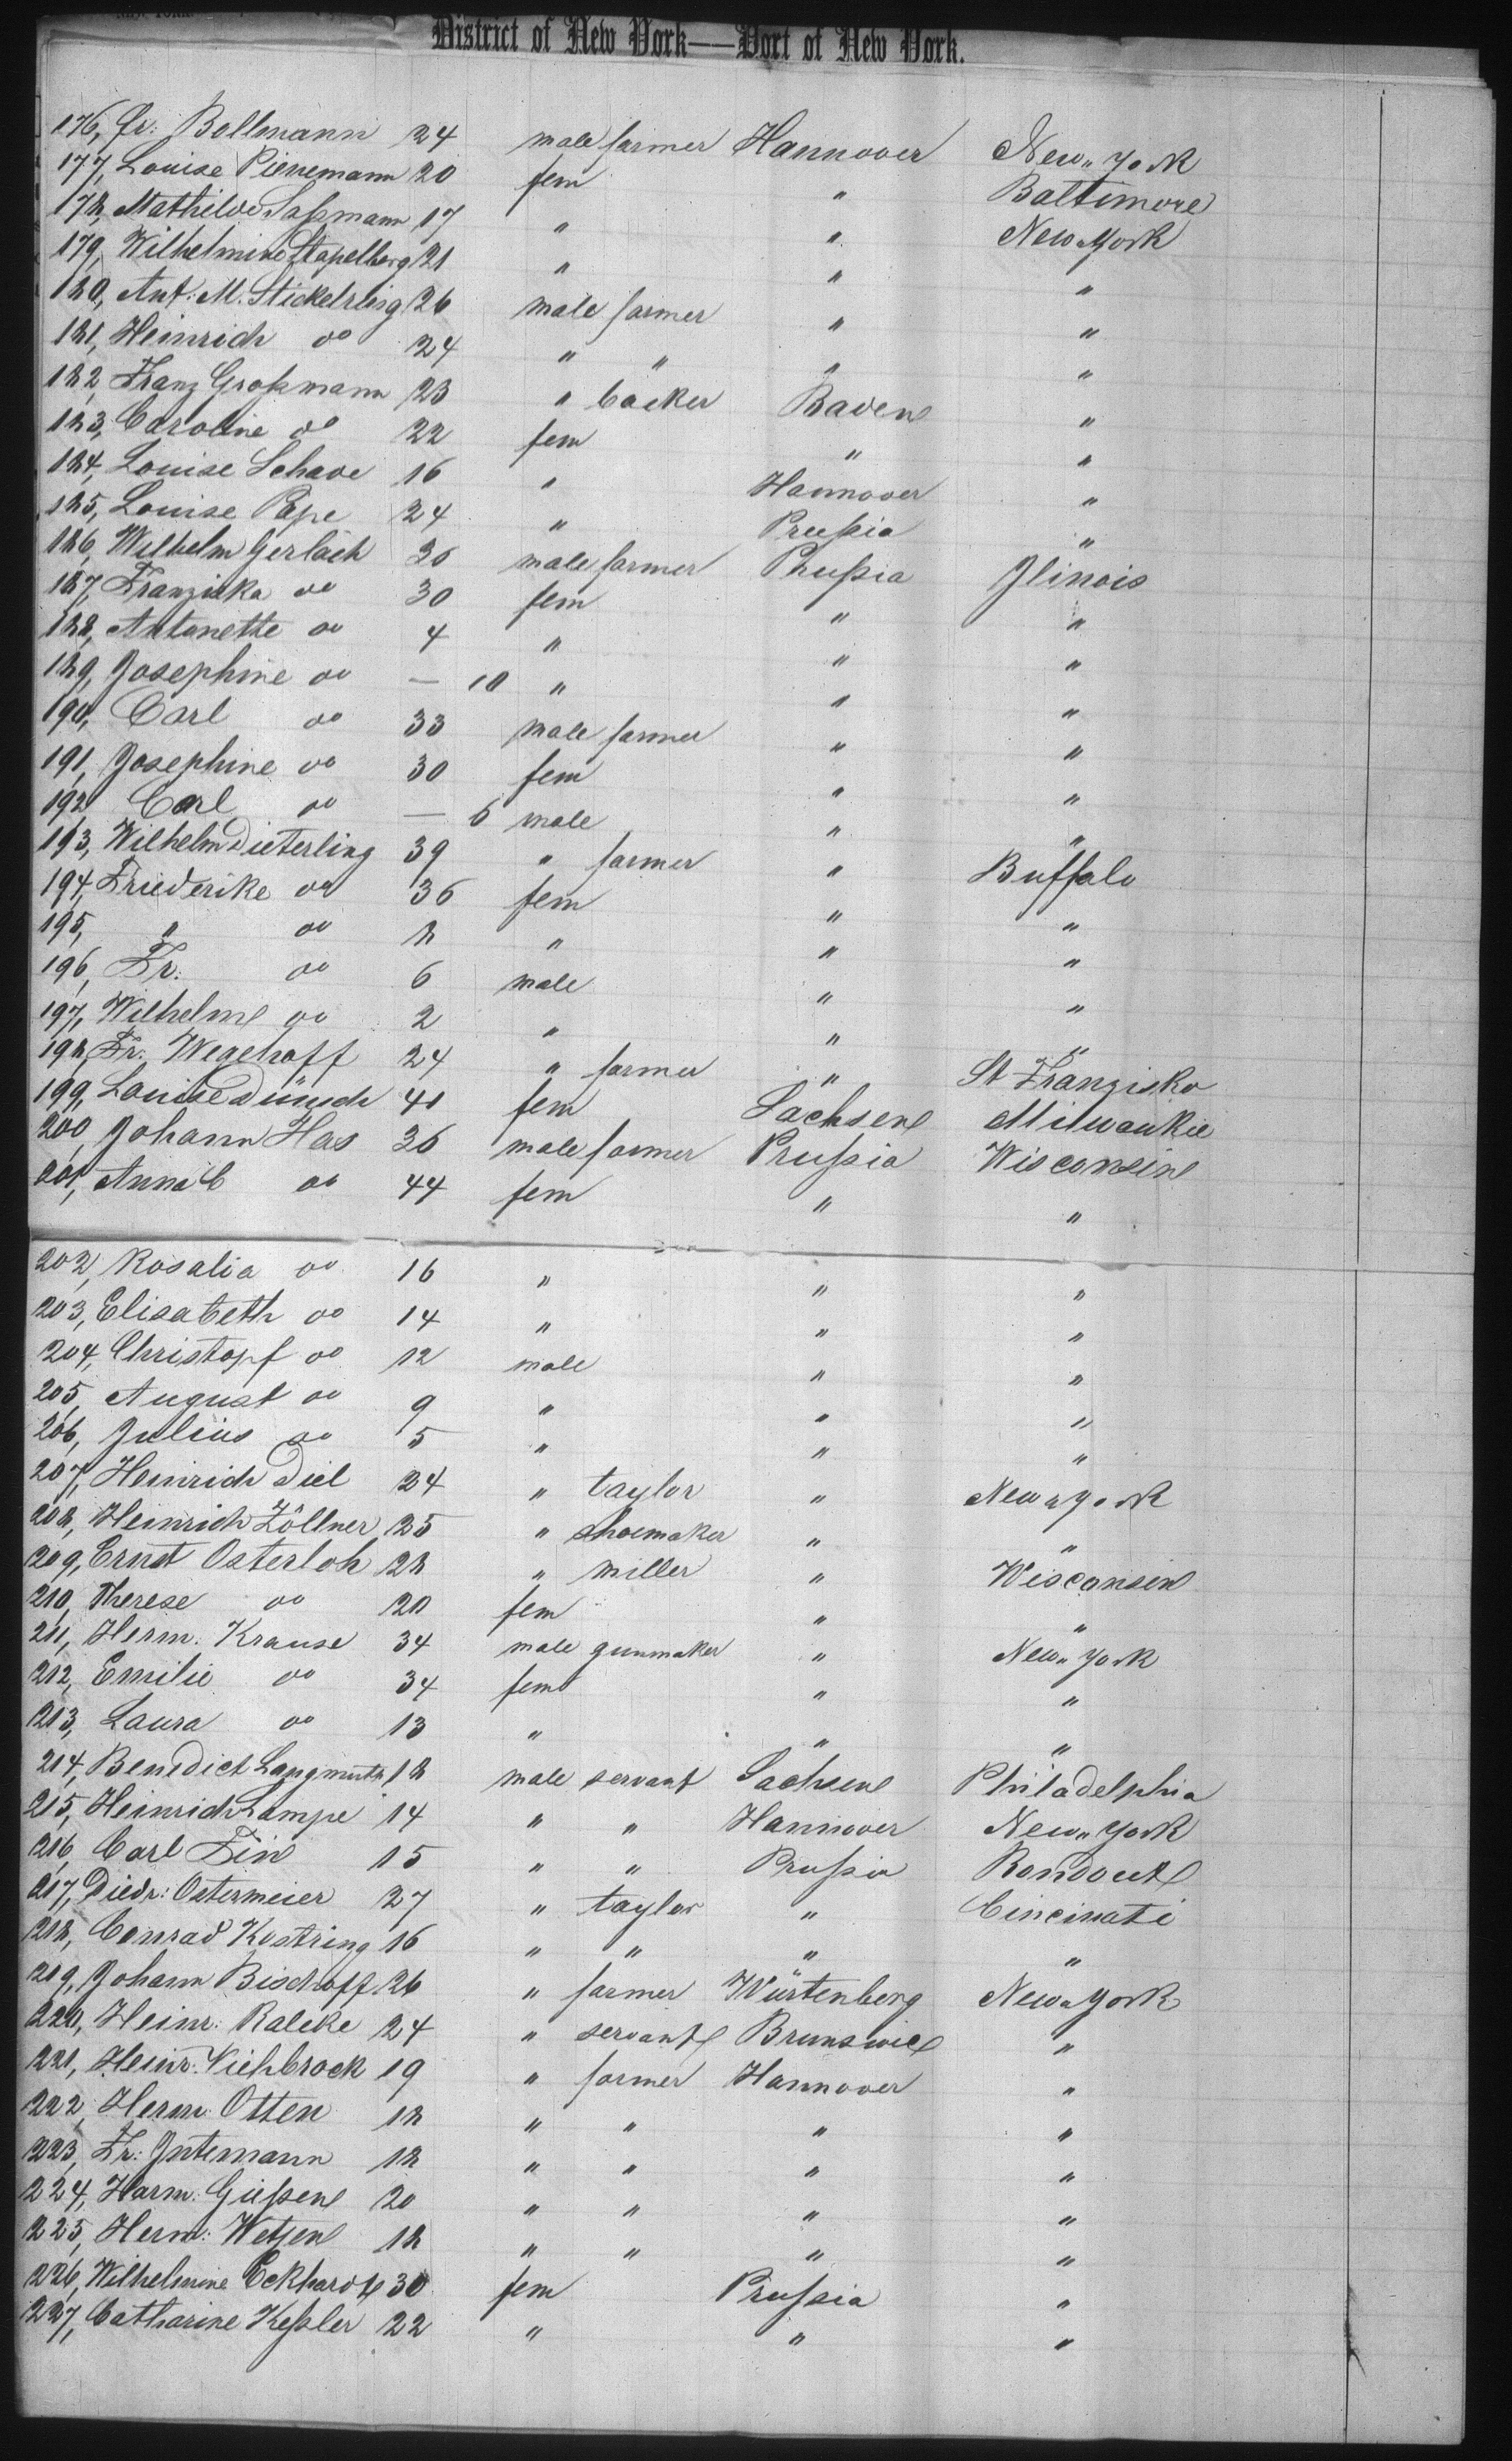 District of New York—Port of New York.
176, Fr: Bollmann 24 male farmer Hannover New-York
177, Louise Pienemann 20 fem " Baltimore
178, Mathilde Saßmann 17 " " New-York
179, Wilhelmine Stapelberg 21 " " "
180, Ant: M. Stickelring 26 male farmer " "
181, Heinrich do 24 " " " "
182, Franz Großmann 23 " backer Baden "
183, Caroline do 22 fem " "
184, Louise Schade 16 " Hannover "
185, Louise Pape 24 " Preußia "
186, Wilhelm Gerlach 36 male farmer Prußia Jlinois
187, Franziska do 30 fem " "
188, Antonette do 4 " " "
189, Josephine do — 10 " " "
190, Carl do 33 male farmer " "
191, Josephine do 30 fem " "
192, Carl do — 6 male " "
193, Wilhelm Dieterling 39 " farmer " Buffalo
194, Friederike do 36 fem " "
195, " do 8 " " "
196, Fr. do 6 male " "
197, Wilhelm do 2 " " "
198, Fr. Wegehoff 24 " farmer " St Franzisko
199, Louise Dünsch 41 fem Sachsen Milwaukie
200, Johann Has 36 male farmer Prußia Wisconsin
201, Anna C do 44 fem " "
202, Rosalia do 16 " " "
203, Elisabeth do 14 " " "
204, Christopf do 12 male " "
205, August do 9 " " "
206, Julius do 5 " " "
207, Heinrich Diel 24 " taylor " New-York
208, Heinrich Zöllner 25 " shoemaker " "
209, Ernst Osterloh 28 " miller " Wisconsin
210, Therese do 20 fem " "
211, Herm. Krause 34 male gunmaker " New-York
212, Emilie do 34 fem " "
213, Laura do 13 " " "
214, Benedict Langmuth 18 male servant Sachsen Philadelphia
215, Heinrich Lampe 14 " " Hannover New-York
216, Carl Fin 15 " " Prußia Rondout
217, Diedr: Ostermeier 27 " taylor " Cincinati
218, Conrad Kostring 16 " " " "
219, Johann Bischoff 26 " farmer Würtenberg New-York
220, Heinr: Raleke 24 " servant Brunswic "
221, Heinr. Viehbrock 19 " farmer Hannover "
222, Herm: Otten 18 " " " "
223, Fr: Jntemann 18 " " " "
224, Harm: Gießen 20 " " " "
225, Herm: Wetjen 18 " " " "
226, Wilhelmine Eckhardt 30 fem Prußia "
227, Catharine Keßler 22 " " "